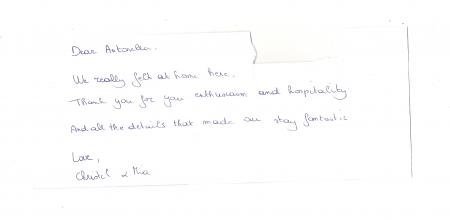 Dear Antonella.
We really felt at home here.
Thank you for you enthusiasm and hospitality
And all the details that made our stay fantastic
Love,
Christel & Mia